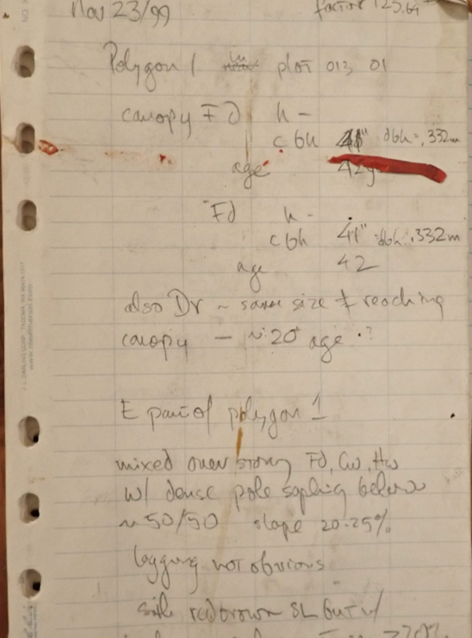 Nov 23/99 factor 125.64
Polygon 1 plot 013 01
canopy Fd h -
cbh 41" dbh = .332m
age 42y
Fd h -
cbh 41" dbh = .332m
age 42
also Dr ~ same size & reaching
canopy - ~20 age ?
E part of polygon 1
mixed overstory Fd, Cw, Hw
w/ dense pole sapling below
~50/50 slope 20-25%
logging not obvious
site red brown SL but w/